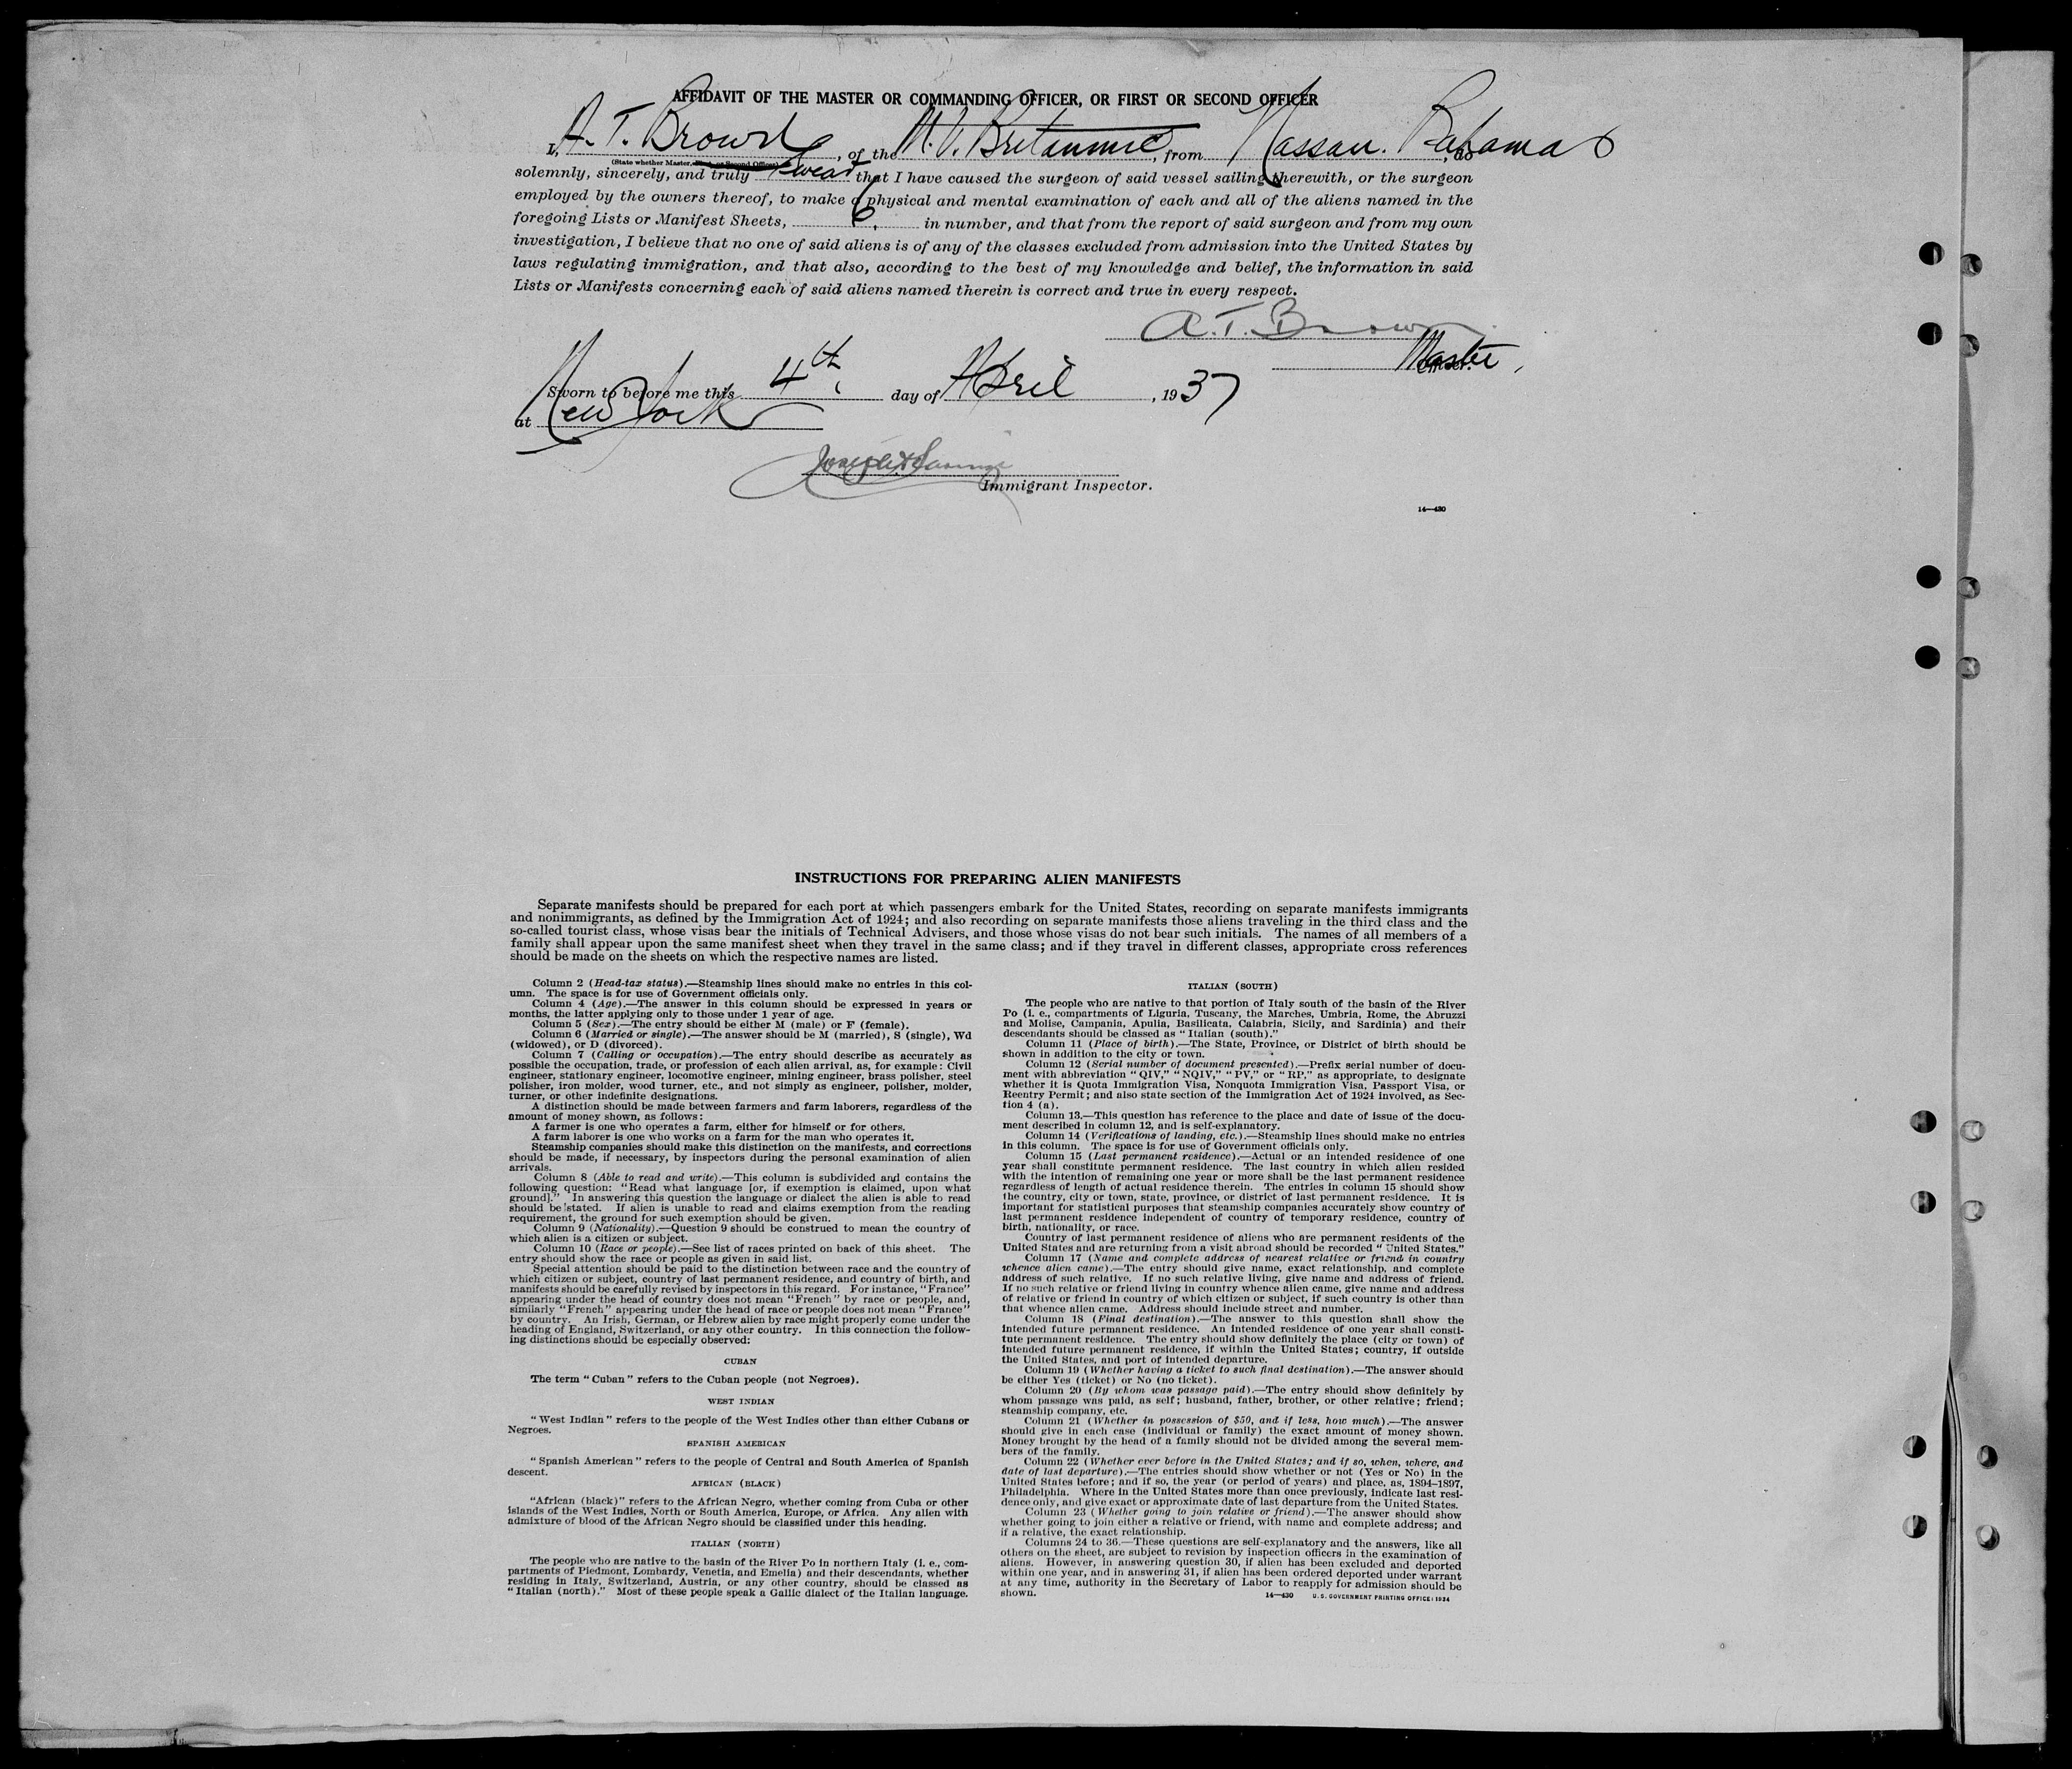 AFFIDAVIT OF THE MASTER OR COMMANDING OFFICER, OR FIRST OR SECOND OFFICER
I, A. T. Brown, of the M.V. Britannic, from Nassau. Bahamas, do
(State whether Master, First, or Second Officer)
solemnly, sincerely, and truly swear that I have caused the surgeon of said vessel sailing therewith, or the surgeon
employed by the owners thereof, to make a physical and mental examination of each and all of the aliens named in the
foregoing Lists or Manifest Sheets, 6, in number, and that from the report of said surgeon and from my own
investigation, I believe that no one of said aliens is of any of the classes excluded from admission into the United States by
laws regulating immigration, and that also, according to the best of my knowledge and belief, the information in said
Lists or Manifests concerning each of said aliens named therein is correct and true in every respect.
A. T. Brown
Master,
Officer.
Sworn to before me this 4th day of April, 1937
at New York
Immigrant Inspector.
14—430
INSTRUCTIONS FOR PREPARING ALIEN MANIFESTS
Separate manifests should be prepared for each port at which passengers embark for the United States, recording on separate manifests immigrants
and nonimmigrants, as defined by the Immigration Act of 1924; and also recording on separate manifests those aliens traveling in the third class and the
so-called tourist class, whose visas bear the initials of Technical Advisers, and those whose visas do not bear such initials. The names of all members of a
family shall appear upon the same manifest sheet when they travel in the same class; and if they travel in different classes, appropriate cross references
should be made on the sheets on which the respective names are listed.
Column 2 (Head-tax status).—Steamship lines should make no entries in this col-
umn. The space is for use of Government officials only.
Column 4 (Age).—The answer in this column should be expressed in years or
months, the latter applying only to those under 1 year of age.
Column 5 (Sex).—The entry should be either M (male) or F (female).
Column 6 (Married or single).—The answer should be M (married), S (single), Wd
(widowed), or D (divorced).
Column 7 (Calling or occupation).—The entry should describe as accurately as
possible the occupation, trade, or profession of each alien arrival, as, for example: Civil
engineer, stationary engineer, locomotive engineer, mining engineer, brass polisher, steel
polisher, iron molder, wood turner, etc., and not simply as engineer, polisher, molder,
turner, or other indefinite designations.
A distinction should be made between farmers and farm laborers, regardless of the
amount of money shown, as follows:
A farmer is one who operates a farm, either for himself or for others.
A farm laborer is one who works on a farm for the man who operates it.
Steamship companies should make this distinction on the manifests, and corrections
should be made, if necessary, by inspectors during the personal examination of alien
arrivals.
Column 8 (Able to read and write).—This column is subdivided and contains the
following question: "Read what language [or, if exemption is claimed, upon what
ground]." In answering this question the language or dialect the alien is able to read
should be stated. If alien is unable to read and claims exemption from the reading
requirement, the ground for such exemption should be given.
Column 9 (Nationality).—Question 9 should be construed to mean the country of
which alien is a citizen or subject.
Column 10 (Race or people).—See list of races printed on back of this sheet. The
entry should show the race or people as given in said list.
Special attention should be paid to the distinction between race and the country of
which citizen or subject, country of last permanent residence, and country of birth, and
manifests should be carefully revised by inspectors in this regard. For instance, "France"
appearing under the head of country does not mean "French" by race or people, and,
similarly "French" appearing under the head of race or people does not mean "France"
by country. An Irish, German, or Hebrew alien by race might properly come under the
heading of England, Switzerland, or any other country. In this connection the follow-
ing distinctions should be especially observed:
CUBAN
The term "Cuban" refers to the Cuban people (not Negroes).
WEST INDIAN
"West Indian" refers to the people of the West Indies other than either Cubans or
Negroes.
SPANISH AMERICAN
"Spanish American" refers to the people of Central and South America of Spanish
descent.
AFRICAN (BLACK)
"African (black)" refers to the African Negro, whether coming from Cuba or other
islands of the West Indies, North or South America, Europe, or Africa. Any alien with
admixture of blood of the African Negro should be classified under this heading.
ITALIAN (NORTH)
The people who are native to the basin of the River Po in northern Italy (i. e., com-
partments of Piedmont, Lombardy, Venetia, and Emelia) and their descendants, whether
residing in Italy, Switzerland, Austria, or any other country, should be classed as
"Italian (north)." Most of these people speak a Gallic dialect of the Italian language.
ITALIAN (SOUTH)
The people who are native to that portion of Italy south of the basin of the River
Po (i. e., compartments of Liguria, Tuscany, the Marches, Umbria, Rome, the Abruzzi
and Molise, Campania, Apulia, Basilicata, Calabria, Sicily, and Sardinia) and their
descendants should be classed as "Italian (south)."
Column 11 (Place of birth).—The State, Province, or District of birth should be
shown in addition to the city or town.
Column 12 (Serial number of document presented).—Prefix serial number of docu-
ment with abbreviation "QIV," "NQIV," "PV," or "RP," as appropriate, to designate
whether it is Quota Immigration Visa, Nonquota Immigration Visa, Passport Visa, or
Reentry Permit; and also state section of the Immigration Act of 1924 involved, as Sec-
tion 4 (a).
Column 13.—This question has reference to the place and date of issue of the docu-
ment described in column 12, and is self-explanatory.
Column 14 (Verifications of landing, etc.).—Steamship lines should make no entries
in this column. The space is for use of Government officials only.
Column 15 (Last permanent residence).—Actual or an intended residence of one
year shall constitute permanent residence. The last country in which alien resided
with the intention of remaining one year or more shall be the last permanent residence
regardless of length of actual residence therein. The entries in column 15 should show
the country, city or town, state, province, or district of last permanent residence. It is
important for statistical purposes that steamship companies accurately show country of
last permanent residence independent of country of temporary residence, country of
birth, nationality, or race.
Country of last permanent residence of aliens who are permanent residents of the
United States and are returning from a visit abroad should be recorded "United States."
Column 17 (Name and complete address of nearest relative or friend in country
whence alien came).—The entry should give name, exact relationship, and complete
address of such relative. If no such relative living, give name and address of friend.
If no such relative or friend living in country whence alien came, give name and address
of relative or friend in country of which citizen or subject, if such country is other than
that whence alien came. Address should include street and number.
Column 18 (Final destination).—The answer to this question shall show the
intended future permanent residence. An intended residence of one year shall consti-
tute permanent residence. The entry should show definitely the place (city or town) of
intended future permanent residence, if within the United States; country, if outside
the United States, and port of intended departure.
Column 19 (Whether having a ticket to such final destination).—The answer should
be either Yes (ticket) or No (no ticket).
Column 20 (By whom was passage paid).—The entry should show definitely by
whom passage was paid, as self; husband, father, brother, or other relative; friend;
steamship company, etc.
Column 21 (Whether in possession of $50, and if less, how much).—The answer
should give in each case (individual or family) the exact amount of money shown.
Money brought by the head of a family should not be divided among the several mem-
bers of the family.
Column 22 (Whether ever before in the United States; and if so, when, where, and
date of last departure).—The entries should show whether or not (Yes or No) in the
United States before; and if so, the year (or period of years) and place, as, 1894–1897,
Philadelphia. Where in the United States more than once previously, indicate last resi-
dence only, and give exact or approximate date of last departure from the United States.
Column 23 (Whether going to join relative or friend).—The answer should show
whether going to join either a relative or friend, with name and complete address; and
if a relative, the exact relationship.
Columns 24 to 36.—These questions are self-explanatory and the answers, like all
others on the sheet, are subject to revision by inspection officers in the examination of
aliens. However, in answering question 30, if alien has been excluded and deported
within one year, and in answering 31, if alien has been ordered deported under warrant
at any time, authority in the Secretary of Labor to reapply for admission should be
shown.
14—430 U. S. GOVERNMENT PRINTING OFFICE: 1934